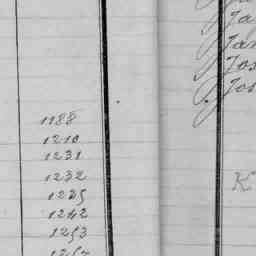 1188
1210
1231
1232
1235
1242
1253
Ja
Jan
Jos
Jos
K